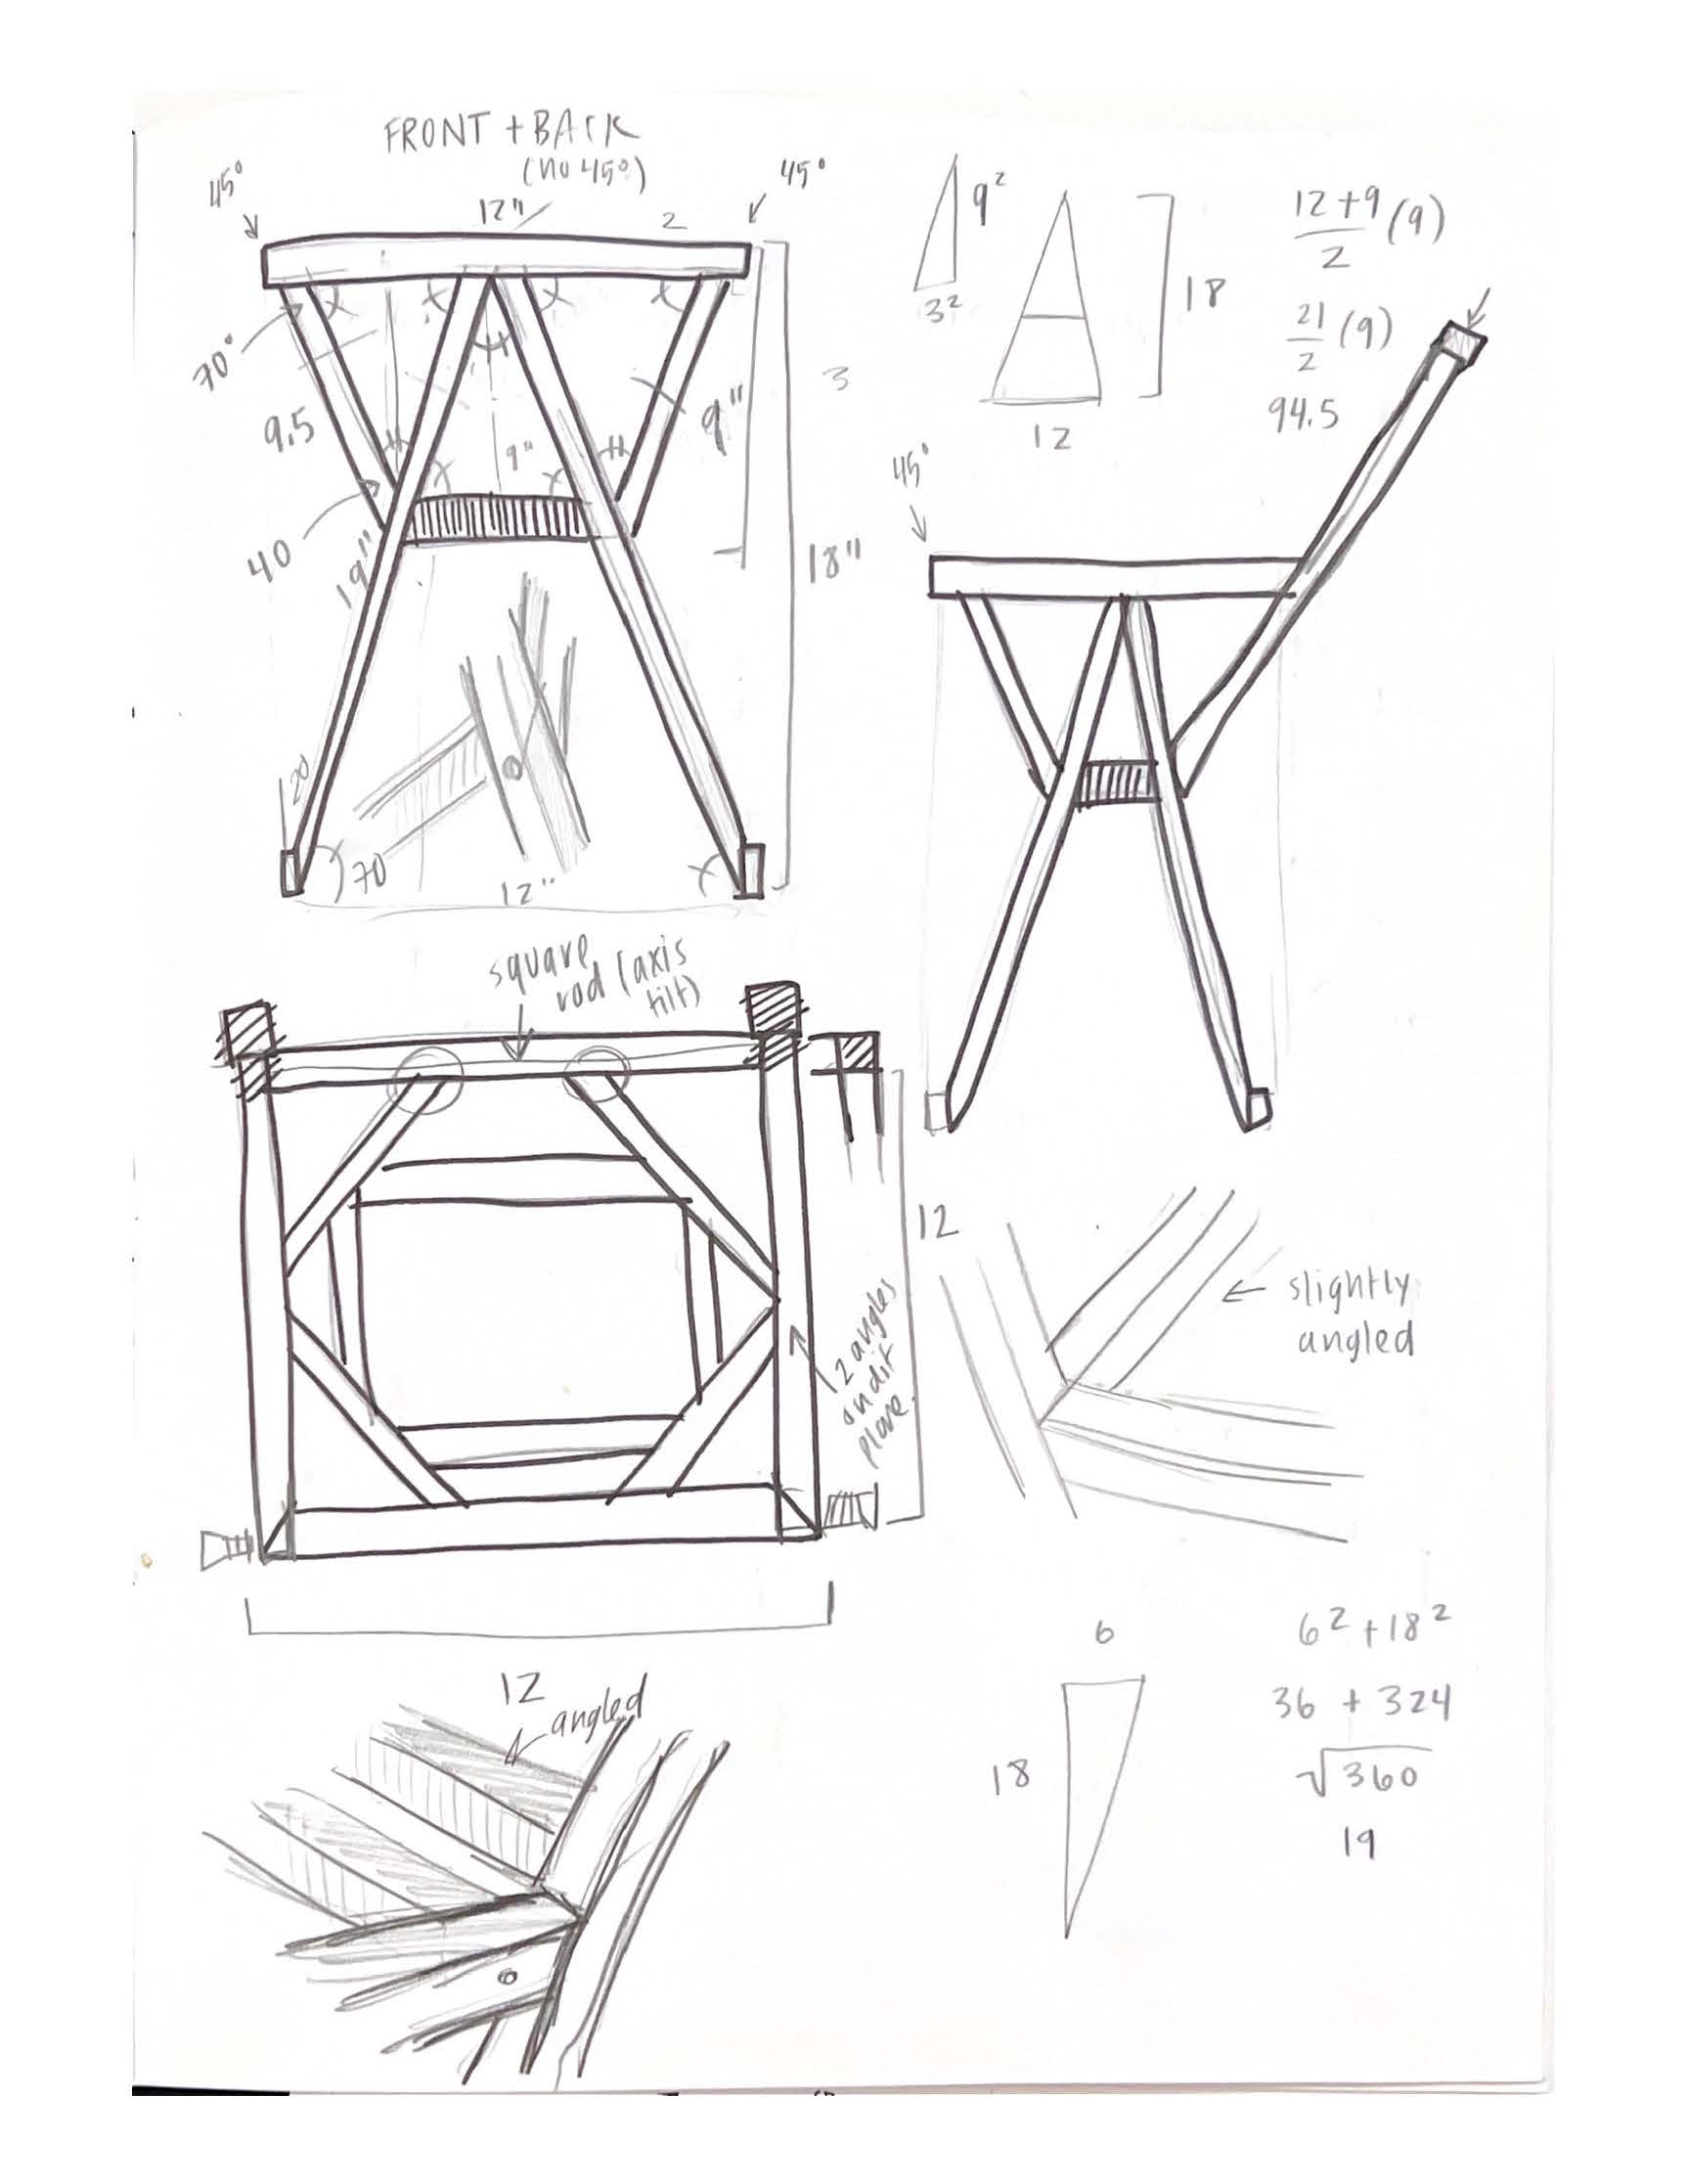 FRONT + BACK
(no 45°)
45°
45°
12"
2
70°
9.5
40
19"
9"
9"
3
18"
20
70
12"
9²
3²
18
12
12 + 9 (9)
2
21 (9)
2
94.5
45°
square
rod (axis
tilt)
12
2 angles
on dif
plane
slightly
angled
12
angled
6
18
6² + 18²
36 + 324
√360
19